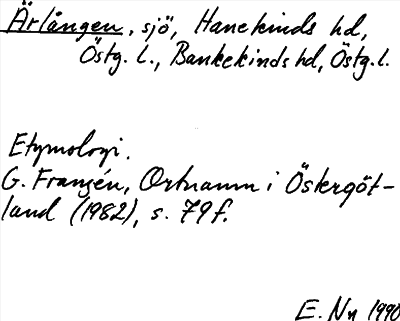 Ärlången, sjö, Hanekinds hd,
Östg. l., Bankekinds hd, Östg. l.
Etymologi.
G. Franzén, Ortnamn i Östergöt-
land (1982), s. 79f.
E. Nn 1990